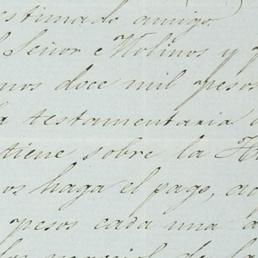 estimado amigo
Señor e Molinos y
nos doce mil pesos
testamentaria
tiene sobre la
os haga el pago, a
pesos cada una